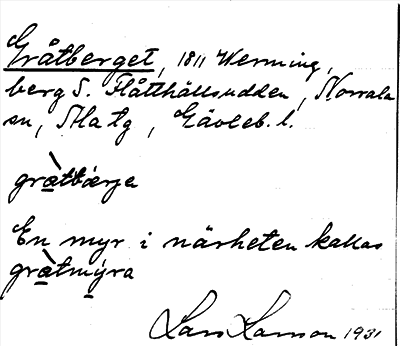 Gråtberget, 1811 Werming,
berg S. Flåtthällsudden, Norrala
sn, Ala tg, Gävleb. l.
gràtbærja
En myr i närheten kallas
gràtmýra
Lars Larsson 1931